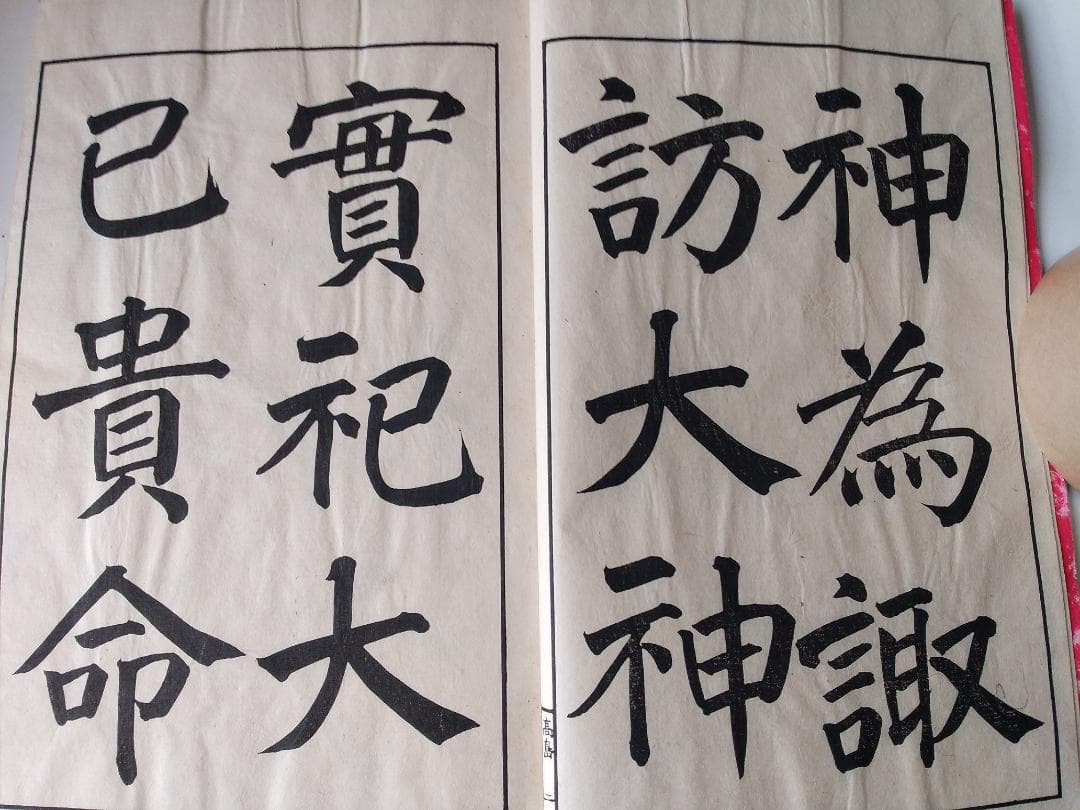 神為諏
訪大神
實祀大
己貴命
高島
二